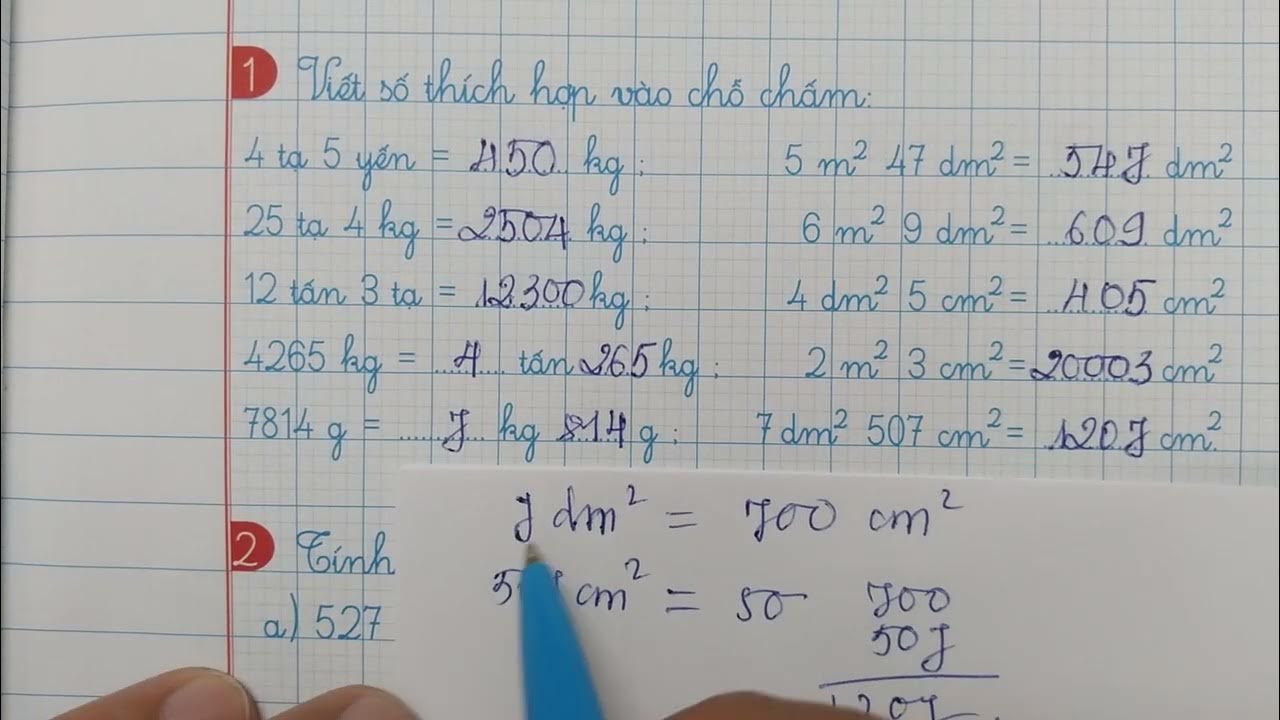 1 Viết số thích hợp vào chỗ chấm:
4 tạ 5 yến = 450 kg; 5 m² 47 dm² = 547 dm²
25 tạ 4 kg = 2504 kg; 6 m² 9 dm² = 609 dm²
12 tấn 3 tạ = 12300 kg; 4 dm² 5 cm² = 405 cm²
4265 kg = 4 tấn 265 kg; 2 m² 3 cm² = 20003 cm²
7814 g = 7 kg 814 g; 7 dm² 507 cm² = 1207 cm²
7 dm² = 700 cm²
2 Tính
cm² = 50 700
a) 527
507
1207